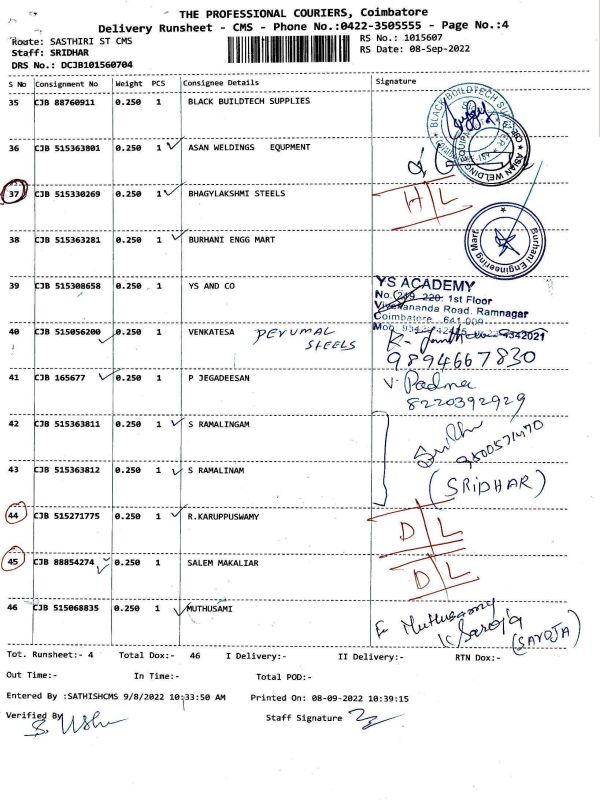 THE PROFESSIONAL COURIERS, Coimbatore
Delivery Runsheet - CMS - Phone No.:0422-3505555 - Page No.:4
Route: SASTHIRI ST CMS
RS No.: 1015607
Staff: SRIDHAR
RS Date: 08-Sep-2022
DRS No.: DCJB101560704
S No Consignment No Weight PCS Consignee Details Signature
35 CJB 88760911 0.250 1 BLACK BUILDTECH SUPPLIES
BLACK BUILDTECH
36 CJB 515363801 0.250 1 ASAN WELDINGS EQUPMENT
ASIAN WELDING EQUIP
37 CJB 515330269 0.250 1 BHAGYLAKSHMI STEELS H/L
38 CJB 515363281 0.250 1 BURHANI ENGG MART
Burhani Engineering Mart.
39 CJB 515308658 0.250 1 YS AND CO
YS ACADEMY
No. 219, 220. 1st Floor
Vivekananda Road. Ramnagar
Coimbatore 641 009
40 CJB 515056200 0.250 1 VENKATESA PEYUMAL STEELS
9894667830
41 CJB 165677 0.250 1 P JEGADEESAN V. Padma
8220392929
42 CJB 515363811 0.250 1 S RAMALINGAM
43 CJB 515363812 0.250 1 S RAMALINAM
(SRIDHAR)
44 CJB 515271775 0.250 1 R.KARUPPUSWAMY D/L
45 CJB 88854274 0.250 1 SALEM MAKALIAR D/L
46 CJB 515068835 0.250 1 MUTHUSAMI
Muthusamy
K Saroja
(SAROJA)
Tot. Runsheet:- 4 Total Dox:- 46 I Delivery:- II Delivery:- RTN Dox:-
Out Time:- In Time:- Total POD:-
Entered By :SATHISHCMS 9/8/2022 10:33:50 AM Printed On: 08-09-2022 10:39:15
Verified By S. Usha Staff Signature